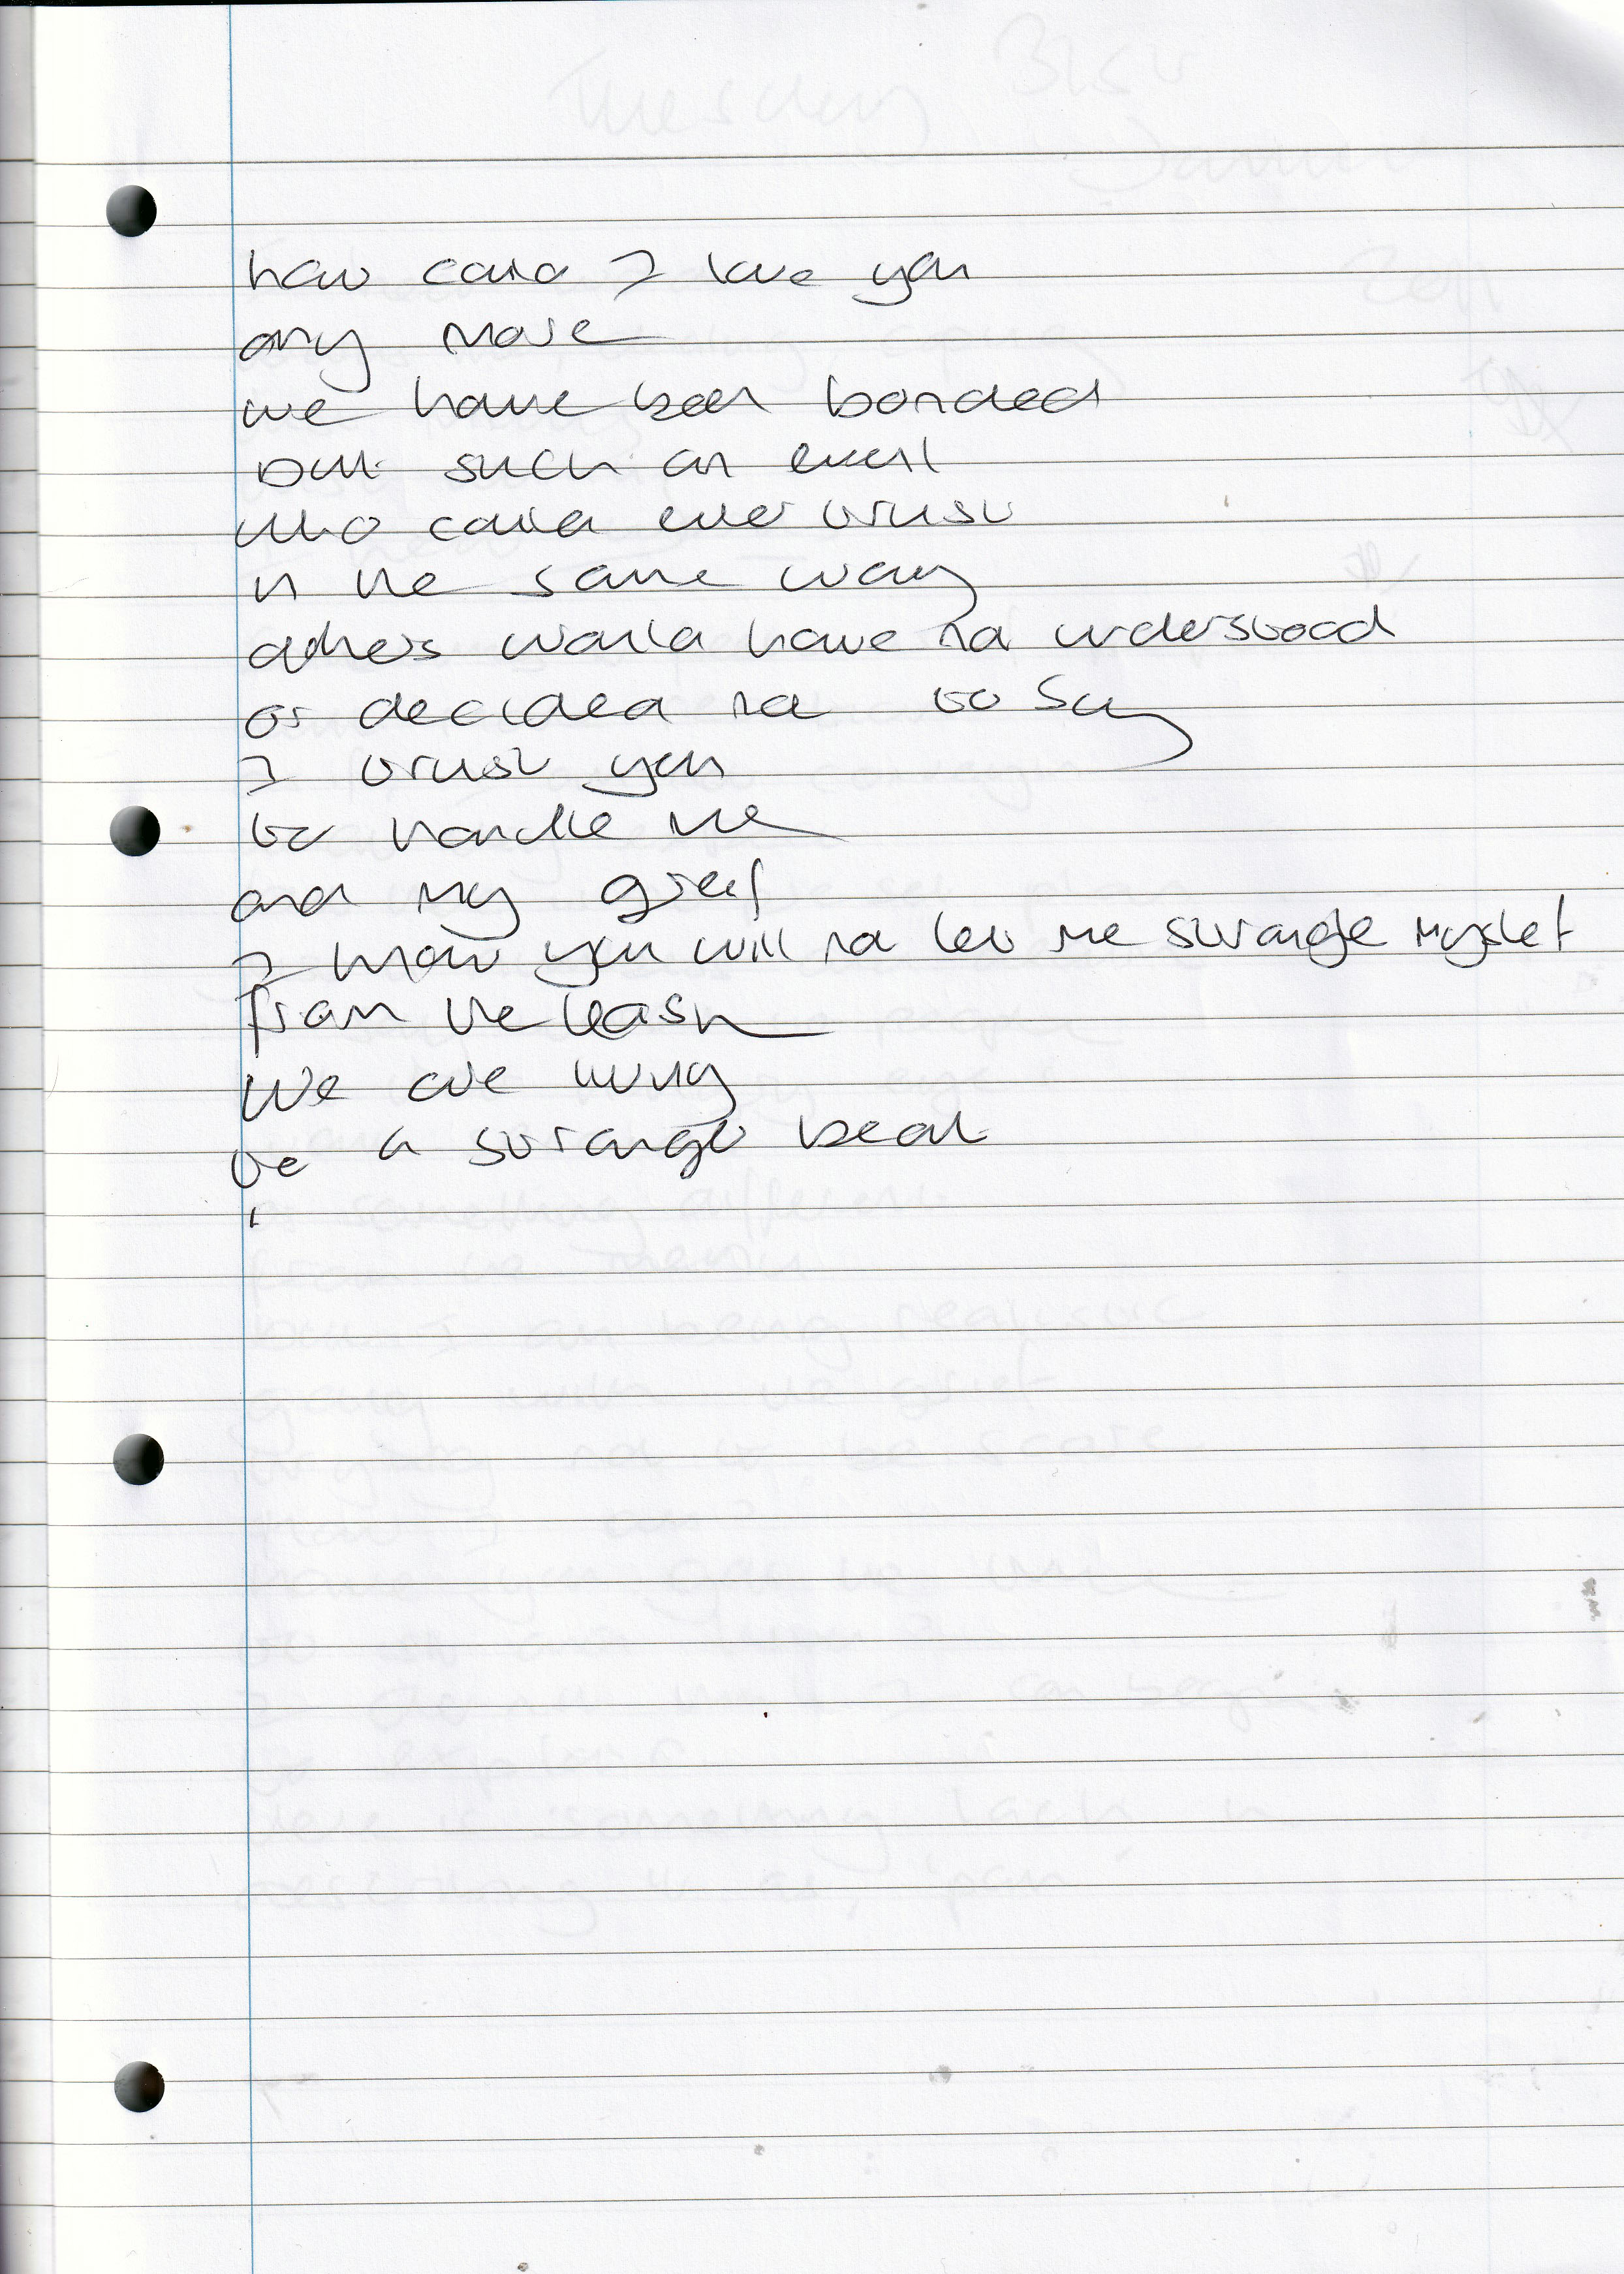 how could I love you
any more
we have been bonded
such an event
who could ever trust
in the same way
others would have not understood
or decided not to say
I trust you
to handle me
and my grief
I know you will not let me strangle myslef
from the leash
We are living
to a strange beat